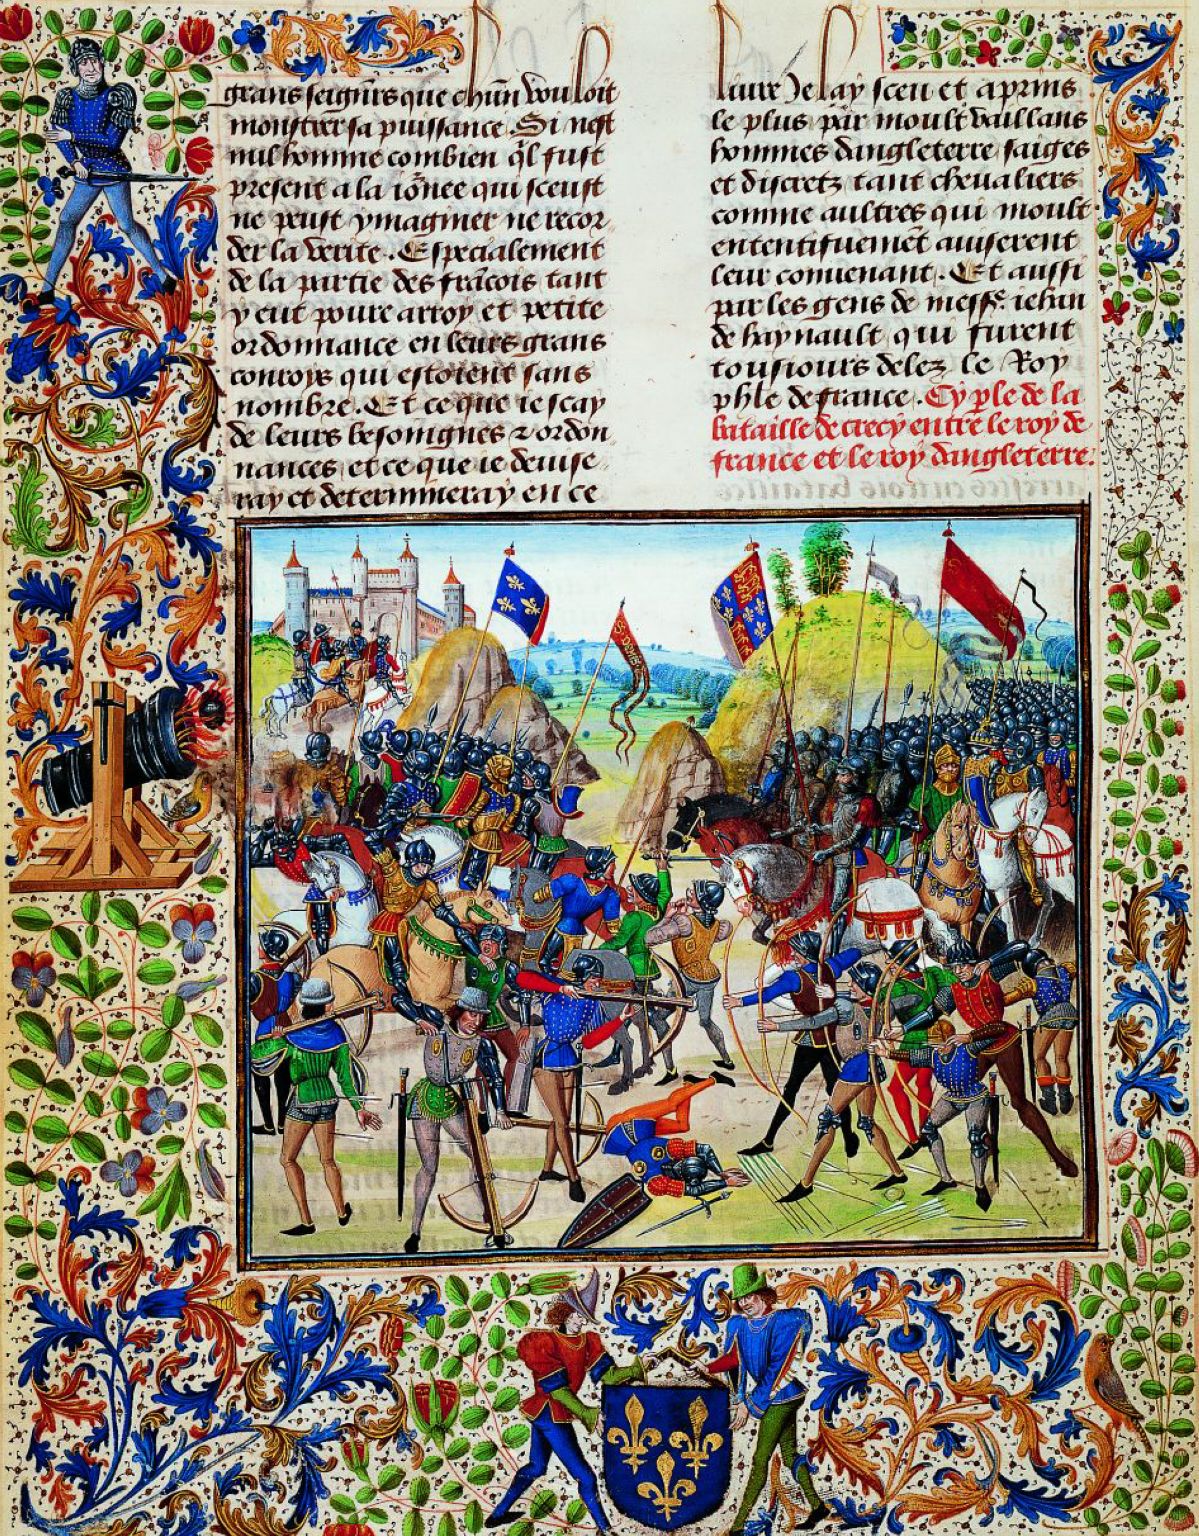 grans seign̄rs que chūn vouloit
monstrer sa puissance. Si nest
nul homme combien q̄l fust
present a la iōnee qui sceust
ne peust ymaginer ne recor
der la verite. Especialement
de la partie des frācois tant
y eut poure arroy et petite
ordonnance en leurs grans
conroys qui estoient sans
nombre. Et ce que ie scay
de leurs besongnes & ordon
nances et ce que ie deuise
ray et determineray en ce
liure Je lay sceu et aprins
le plus par moult vaillans
hommes dangleterre saiges
et discretz tant cheualiers
comme aultres qui moult
ententifuemēt auiserent
leur conuenant. Et aussi
par les gens de messr̄e iehan
de haynault qui furent
tousiours delez le Roy
phle de france. Cy p̄le de la
bataille de crecy entre le roy de
france et le roy dangleterre.